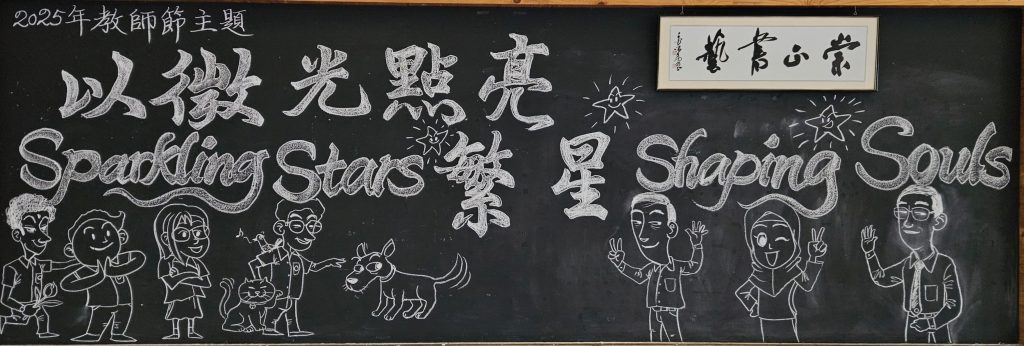 2025年教師節主題
崇正書藝
以微光點亮
Sparkling Stars 繁星 Shaping Souls